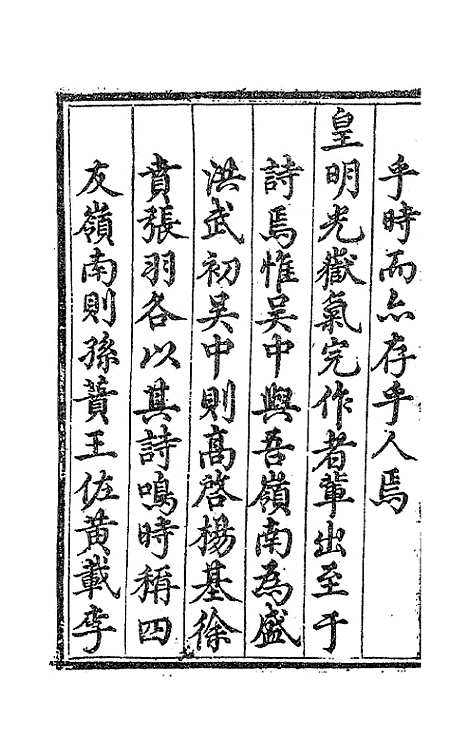 乎時而亦存乎人焉
皇明光嶽氣完作者輩出至于
詩焉惟吳中與吾嶺南為盛
洪武初吳中則高啓楊基徐
賁張羽各以其詩鳴時稱四
友嶺南則孫蕡王佐黃載李